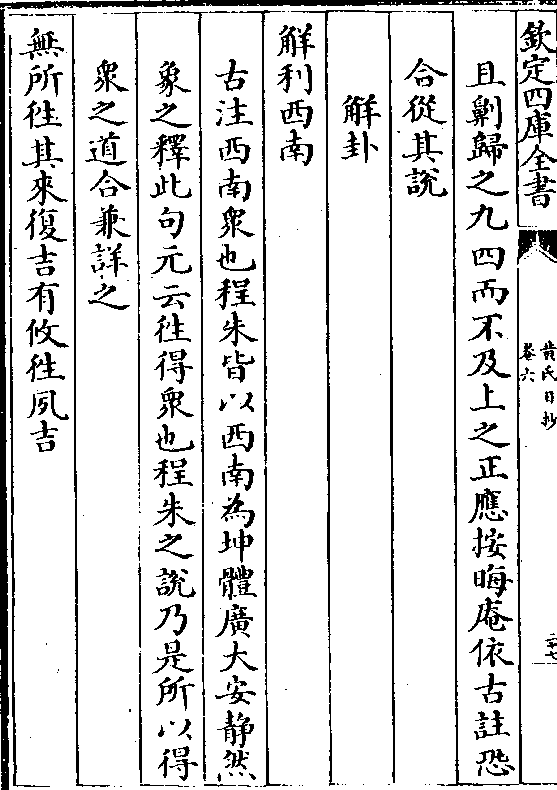 欽定四庫全書
黄氏日抄
卷六
三十七
且劓歸之九四而不及上之正應按晦庵依古註恐
合從其說
解卦
解利西南
古注西南衆也程朱皆以西南為坤體廣大安静然
象之釋此句元云徃得衆也程朱之說乃是所以得
衆之道合兼詳之
無所徃其來復吉有攸徃夙吉